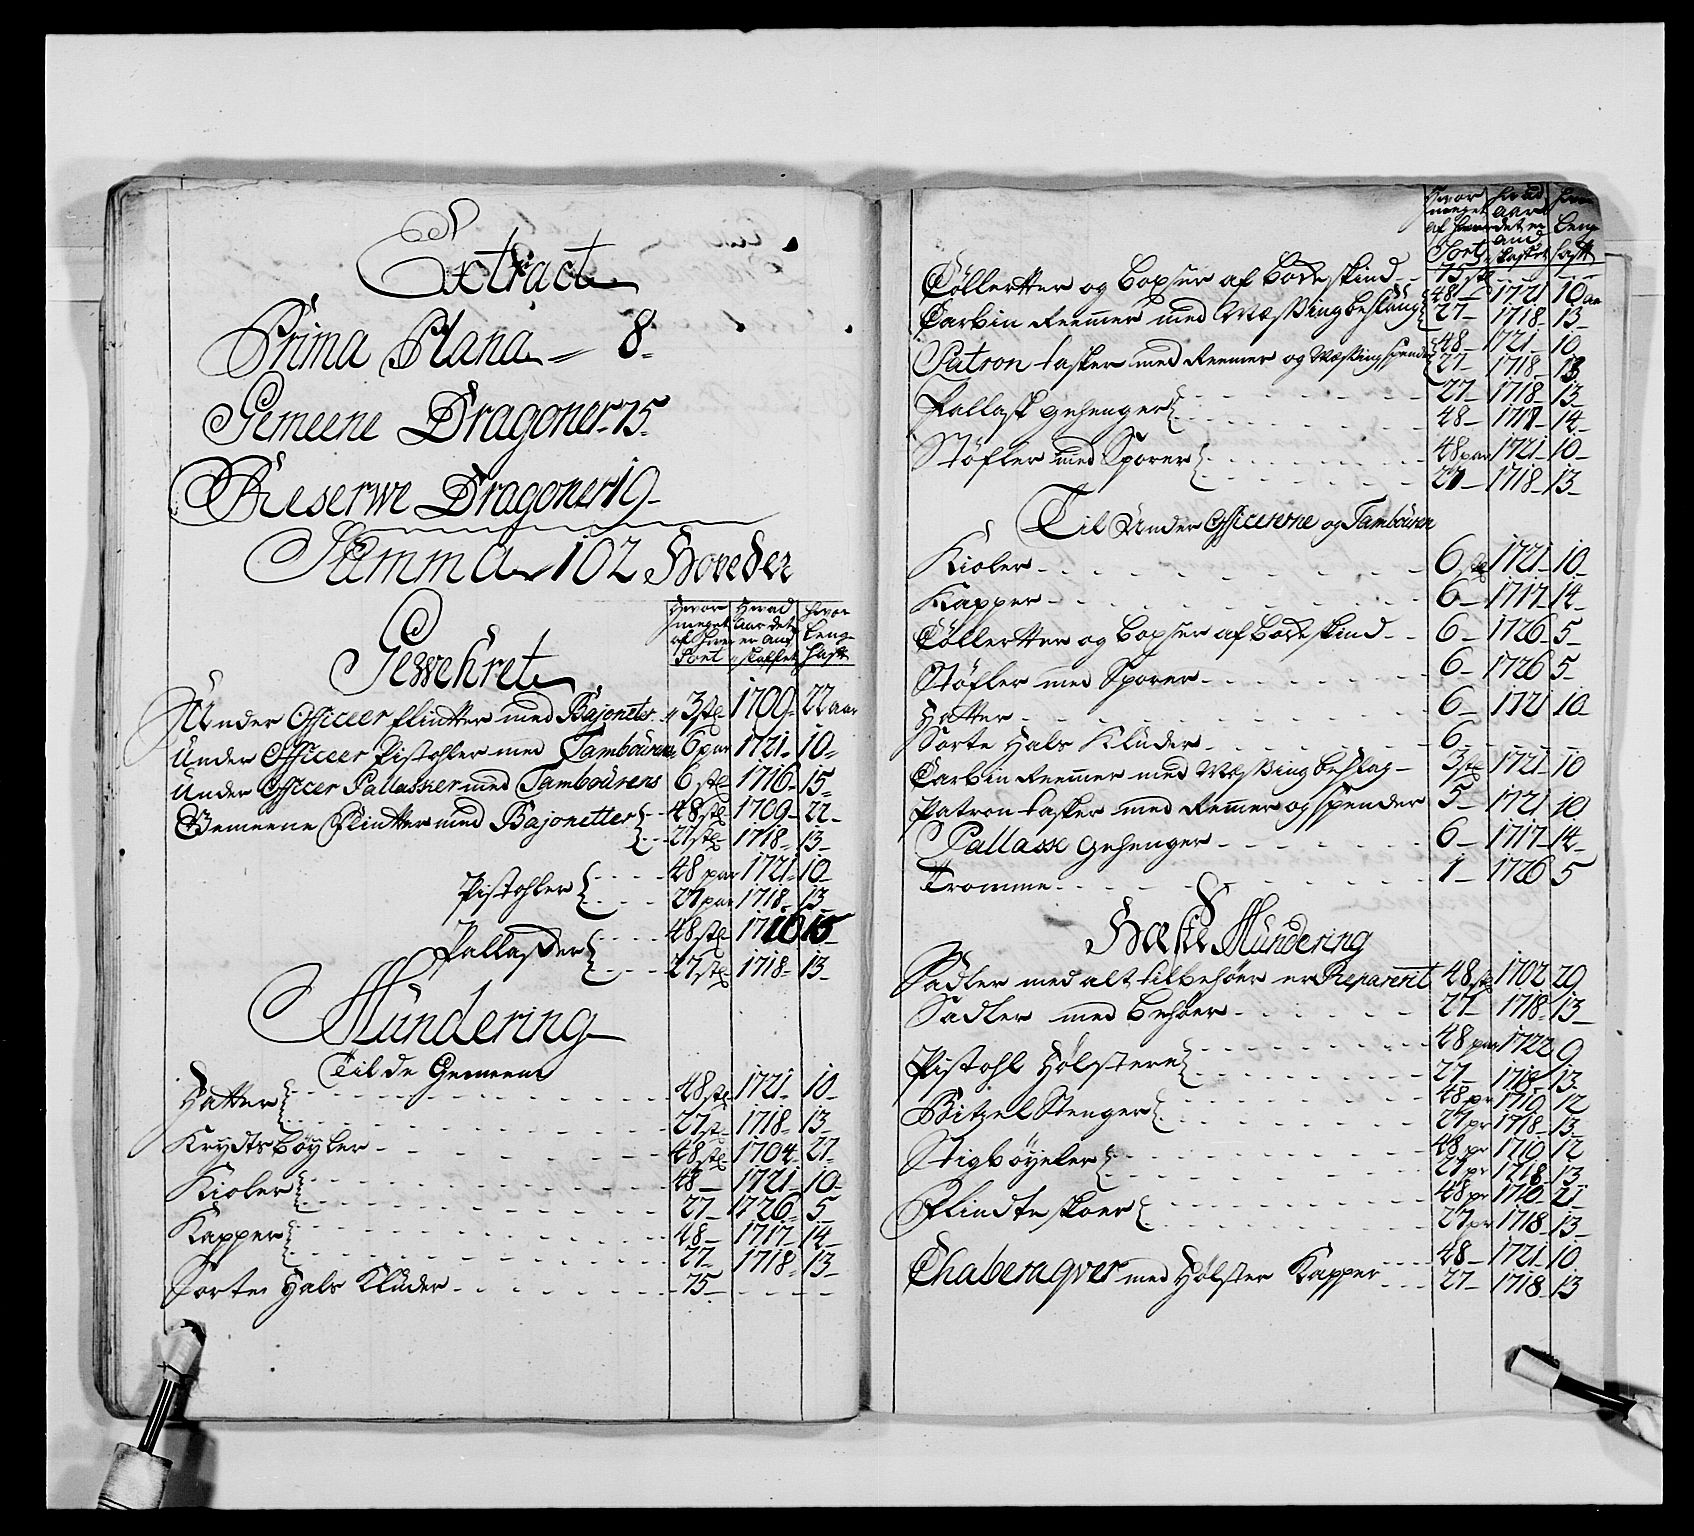 Extract
Prima Plana - 8-
Gemeene Dragoner - 75-
Reserwe Dragoner 19-
Summa 102 Hoveder
Hvor meget af hver Sort
Hvad Aar det er and skaffet
Hvor Leng Hafft
Gewehret
Under Officeer Flintter med Bajonetter 3 stk 1709 - 22 aar
Under Officeer Pistohler med Tambouren 6 par 1721 - 10 -
Under Officer Pallasker med Tambourens 6 stk 1716 - 15 -
Gemeene Flintter med Bajonetter 48 stk 1709 - 22 -
27 stk 1718 - 13 -
Pistohler 48 par 1721 - 10 -
27 par 1718 - 13 -
Pallasker 48 stk 1716 15
27 stk 1718 - 13 -
Mundering
Til de Gemeene
Hatter 48 stk 1721 - 10 -
27 st 1718 - 13 -
Krydtsbøyler 48 stk 1704 - 27 -
Kioler 48 - 1721 - 10 -
27 - 1726 - 5 -
Kapper 48 - 1717 - 14 -
27 - 1718 - 13 -
Sorte Hals Kluder 75 -
Hvor meget af hver Sort
Hvad aar det er and skaffet
Leng hafft
Cøllertter og boxser af bocke skind 75 stk
Carbin Remmer med Messing beslaug 48 - 1721 10 aar
27 - 1718 - 13 -
Patron tasker med Reemer og Messing spender 48 - 1721 - 10
27 - 1718 - 13
Pallask gehenger 27 - 1718 - 13 -
48 - 1717 - 14 -
Støfler med Sporer 48 par 1721 - 10 -
27 - 1718 - 13 -
Til Under Officererne og Tambouren
Kioler 6 stk 1721 - 10 -
Kapper 6 - 1717 - 14 -
Cøllertter og boxser af bocke skind 6 - 1726 - 5 -
Støfler med Sporer 6 - 1726 5 -
Hatter 6 - 1721 10 -
Sorte Hals Kluder 6
Carbin Reemer med Messing beslag 3 stk 1721 - 10
Patron tasker med Remer og spender 5 - 1721 10
Pallask Gehenger 6 - 1717 - 14 -
Tromme 1 - 1726 5
Heste Mundering
Sadler med alt tilbehøer er Reparerit 48 stk 1702 29
Sadler med behøer 27 - 1718 - 13 -
Pistohl Hølstere 48 par 1722 9
27 - 1718 - 13 -
Bitzel Stenger 48 pr 1719 12
27 pr 1718 - 13 -
Stigbøyeler 48 pr 1719 12
27 pr 1718 - 13
Flindte skoer 48 pr 1710 - 21
27 pr 1718 - 13 -
Chaberaqver med Hølster Kapper 48 - 1721 - 10
27 - 1718 - 13